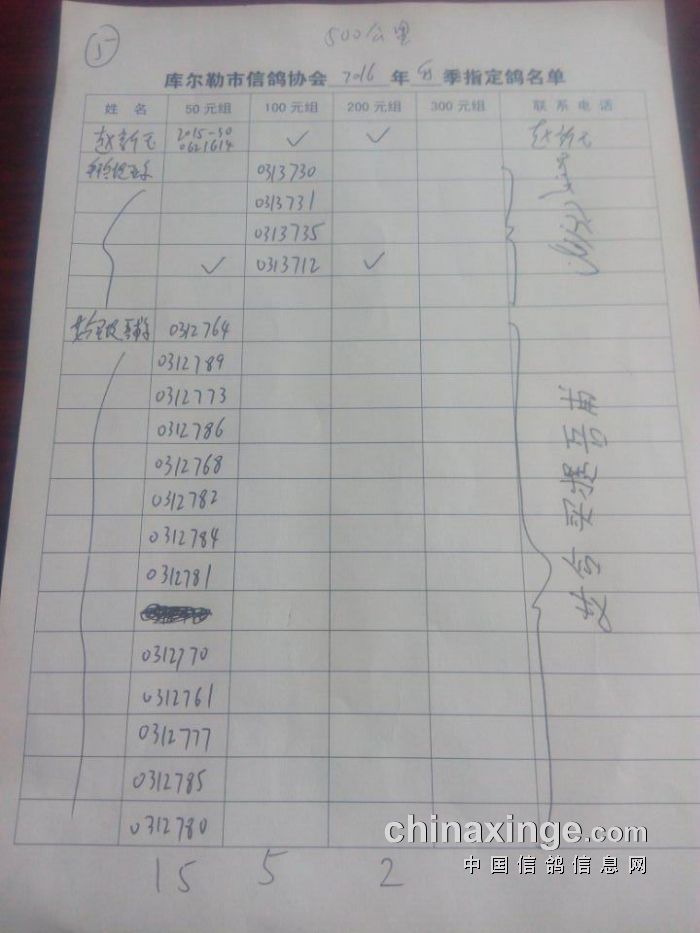 5
500公里
库尔勒市信鸽协会 2016 年 季指定鸽名单
姓 名 50元组 100元组 200元组 300元组 联系电话
赵新元 2015-30 0621614 ✓ ✓ 赵新元
0313730
0313731
0313735
✓ 0313712 ✓
0312764
0312789
0312773
0312786
0312768
0312782
0312784
0312781
0312770
0312761
0312777
0312785
0312780
15 5 2
chinaxinge.com
中国信鸽信息网